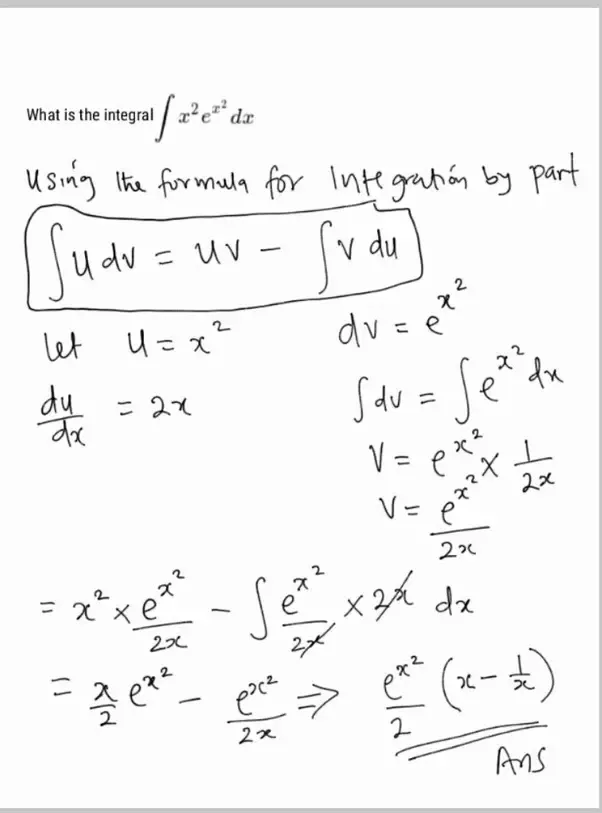 What is the integral ∫ x² e^{x²} dx
Using the formula for Integration by part
∫ u dv = uv − ∫ v du
let u = x²    dv = e^{x²}
du/dx = 2x    ∫ dv = ∫ e^{x²} dx
v = e^{x²} × 1/2x
v = e^{x²}/2x
= x² × e^{x²}/2x − ∫ e^{x²}/2x × 2x dx
= x/2 e^{x²} − e^{x²}/2x ⇒ e^{x²}/2 (x − 1/x)
Ans